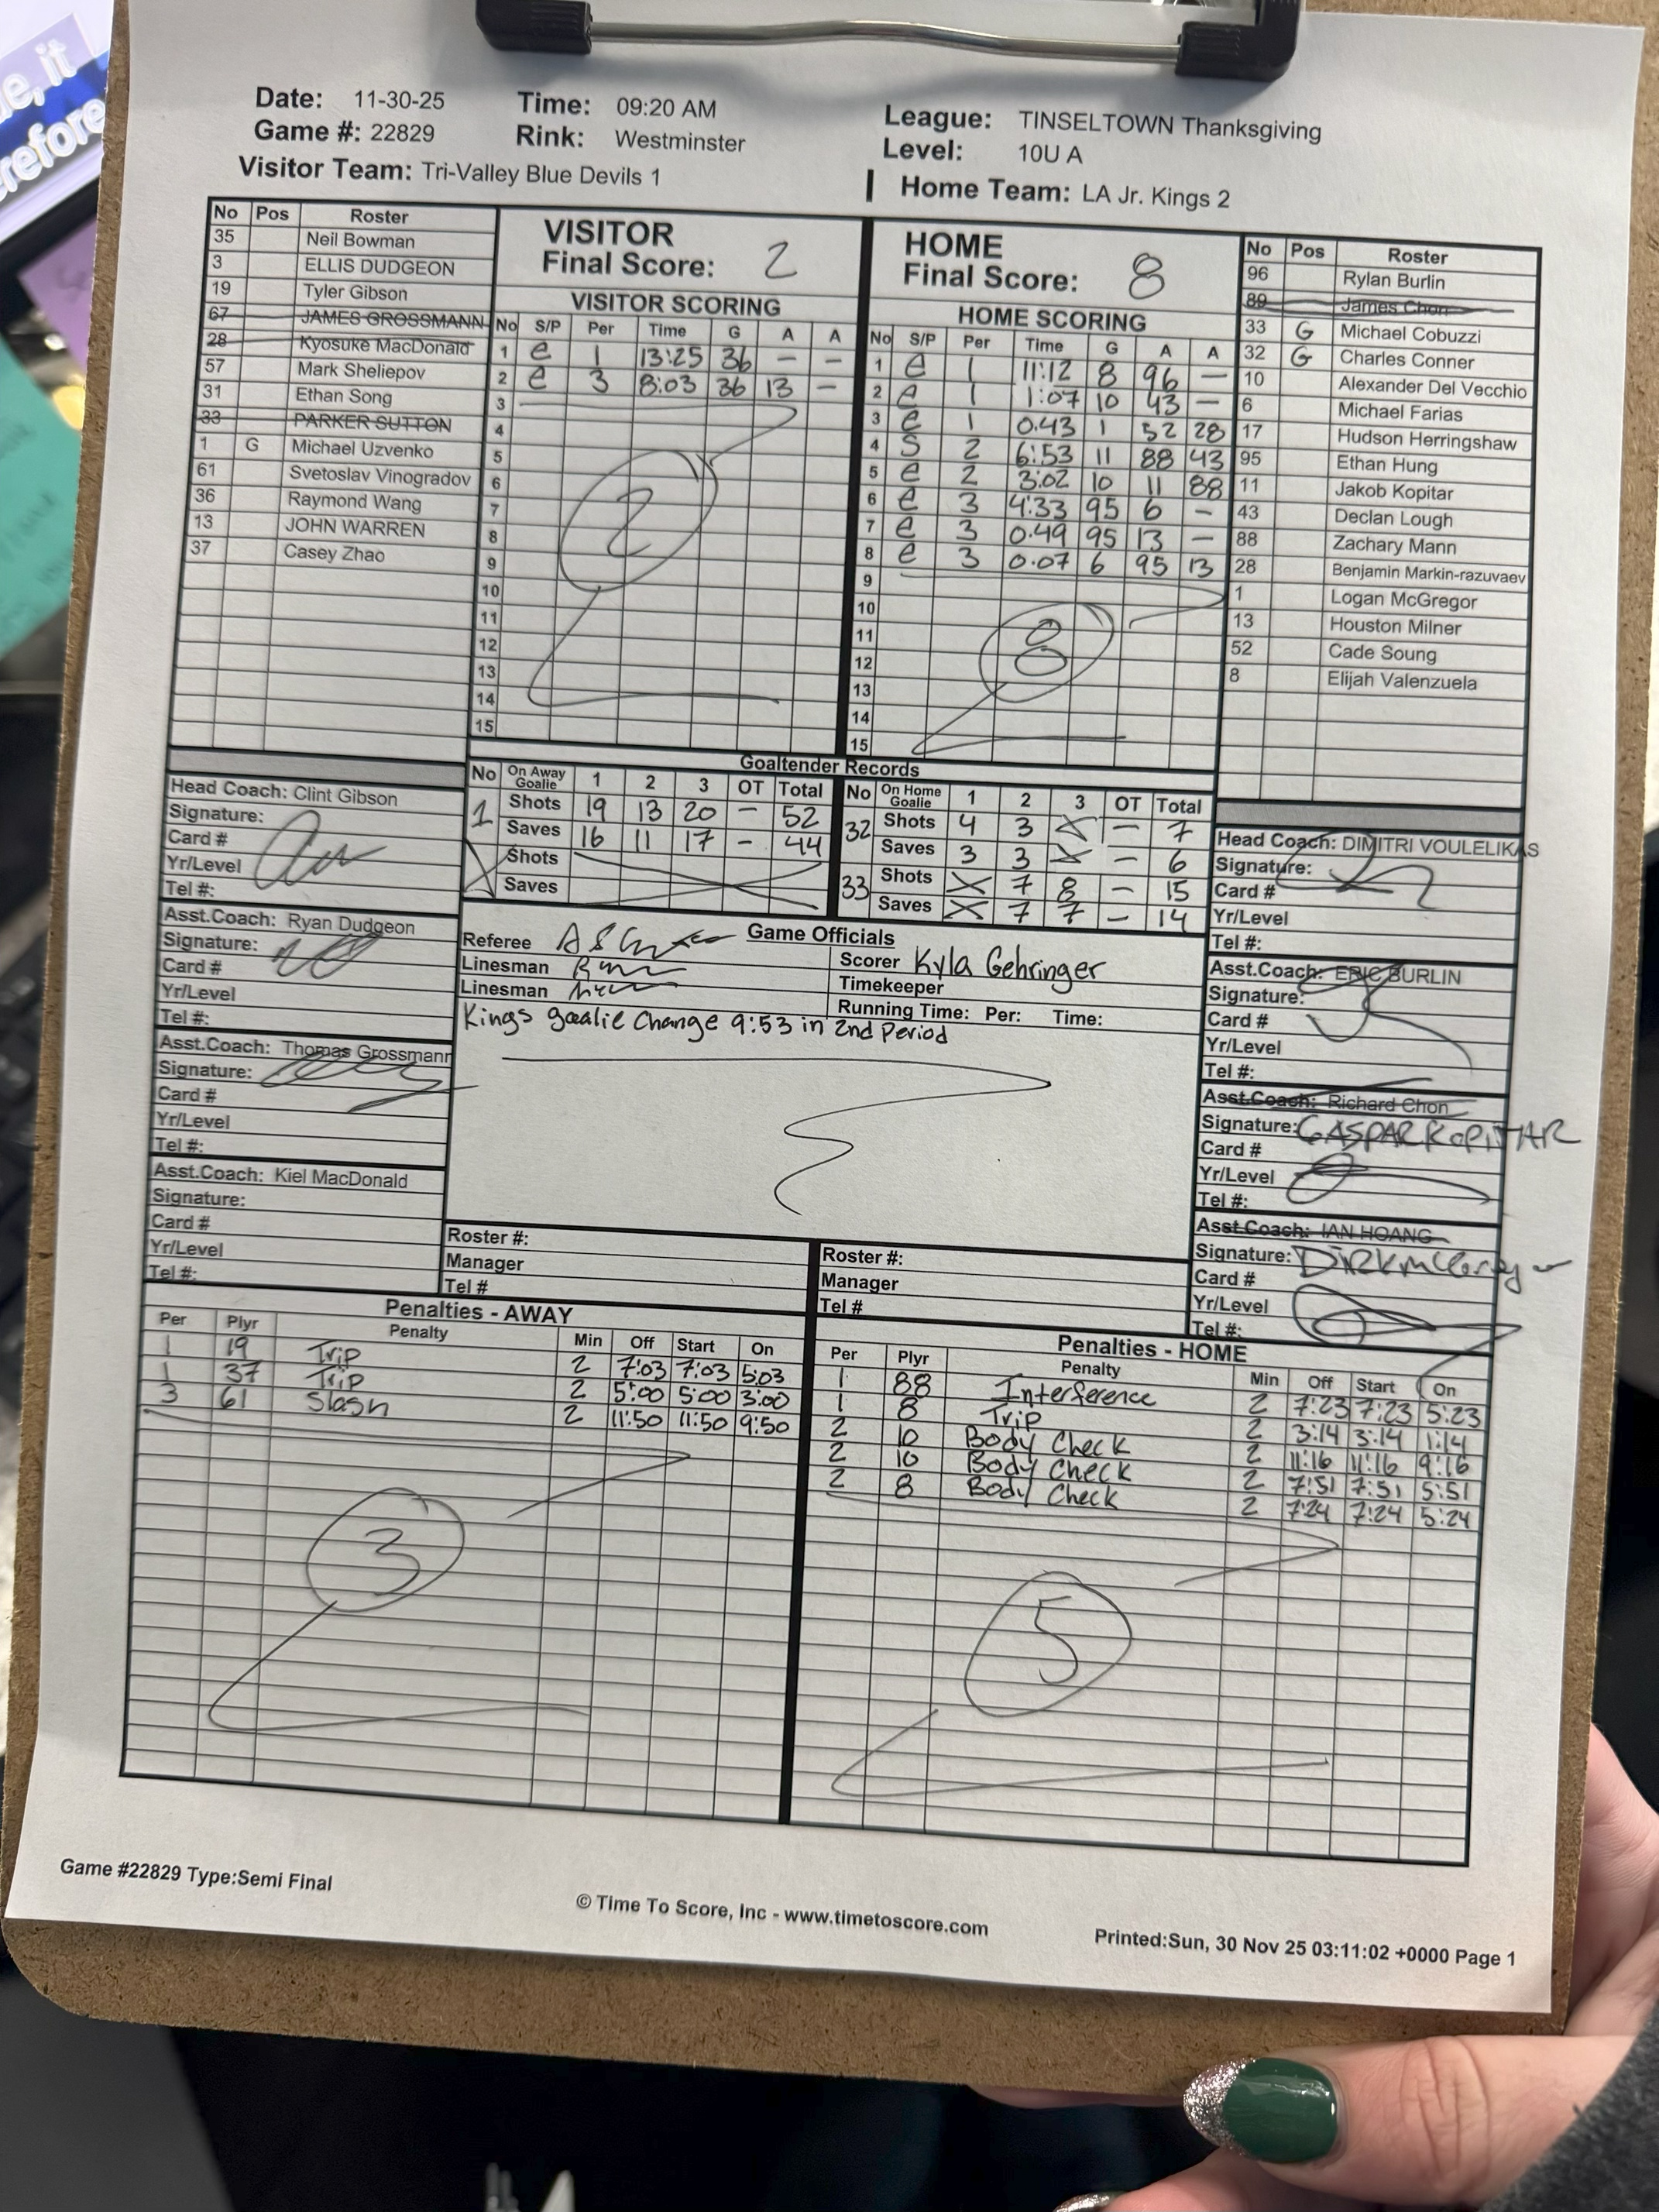 e, it
erefore
Date: 11-30-25 Time: 09:20 AM League: TINSELTOWN Thanksgiving
Game #: 22829 Rink: Westminster Level: 10U A
Visitor Team: Tri-Valley Blue Devils 1 Home Team: LA Jr. Kings 2
No Pos Roster
35 Neil Bowman
3 ELLIS DUDGEON
19 Tyler Gibson
67 JAMES GROSSMANN
28 Kyosuke MacDonald
57 Mark Sheliepov
31 Ethan Song
33 PARKER SUTTON
1 G Michael Uzvenko
61 Svetoslav Vinogradov
36 Raymond Wang
13 JOHN WARREN
37 Casey Zhao
VISITOR
Final Score: 2
VISITOR SCORING
No S/P Per Time G A A
1 e 1 13:25 36 - -
2 e 3 8:03 36 13 -
3
4
5
6
7
8
9
10
11
12
13
14
15
2
HOME
Final Score: 8
HOME SCORING
No S/P Per Time G A A
1 e 1 11:12 8 96 -
2 e 1 1:07 10 43 -
3 e 1 0.43 1 52 28
4 S 2 6:53 11 88 43
5 e 2 3:02 10 11 88
6 e 3 4:33 95 6 -
7 e 3 0.49 95 13 -
8 e 3 0.07 6 95 13
9
10
11
12
13
14
15
8
No Pos Roster
96 Rylan Burlin
89 James Chon
33 G Michael Cobuzzi
32 G Charles Conner
10 Alexander Del Vecchio
6 Michael Farias
17 Hudson Herringshaw
95 Ethan Hung
11 Jakob Kopitar
43 Declan Lough
88 Zachary Mann
28 Benjamin Markin-razuvaev
1 Logan McGregor
13 Houston Milner
52 Cade Soung
8 Elijah Valenzuela
Goaltender Records
No On Away Goalie 1 2 3 OT Total
1 Shots 19 13 20 - 52
Saves 16 11 17 - 44
Shots
Saves
No On Home Goalie 1 2 3 OT Total
32 Shots 4 3 X - 7
Saves 3 3 X - 6
33 Shots X 7 8 - 15
Saves X 7 7 - 14
Head Coach: Clint Gibson
Signature:
Card #
Yr/Level
Tel #:
Asst.Coach: Ryan Dudgeon
Signature:
Card #
Yr/Level
Tel #:
Asst.Coach: Thomas Grossmann
Signature:
Card #
Yr/Level
Tel #:
Asst.Coach: Kiel MacDonald
Signature:
Card #
Yr/Level
Tel #:
Game Officials
Referee
Linesman
Linesman
Scorer Kyla Gehringer
Timekeeper
Running Time: Per: Time:
Kings goalie change 9:53 in 2nd Period
Roster #:
Manager
Tel #
Roster #:
Manager
Tel #
Head Coach: DIMITRI VOULELIKAS
Signature:
Card #
Yr/Level
Tel #:
Asst.Coach: ERIC BURLIN
Signature:
Card #
Yr/Level
Tel #:
Asst.Coach: Richard Chon
Signature: GASPAR KOPITAR
Card #
Yr/Level
Tel #:
Asst.Coach: IAN HOANG
Signature: Dirk McGregor
Card #
Yr/Level
Tel #:
Penalties - AWAY
Per Plyr Penalty Min Off Start On
1 19 Trip 2 7:03 7:03 5:03
1 37 Trip 2 5:00 5:00 3:00
3 61 Slash 2 11:50 11:50 9:50
3
Penalties - HOME
Per Plyr Penalty Min Off Start On
1 88 Interference 2 7:23 7:23 5:23
1 8 Trip 2 3:14 3:14 1:14
2 10 Body Check 2 11:16 11:16 9:16
2 10 Body Check 2 7:51 7:51 5:51
2 8 Body Check 2 7:24 7:24 5:24
5
Game #22829 Type:Semi Final
© Time To Score, Inc - www.timetoscore.com
Printed:Sun, 30 Nov 25 03:11:02 +0000 Page 1